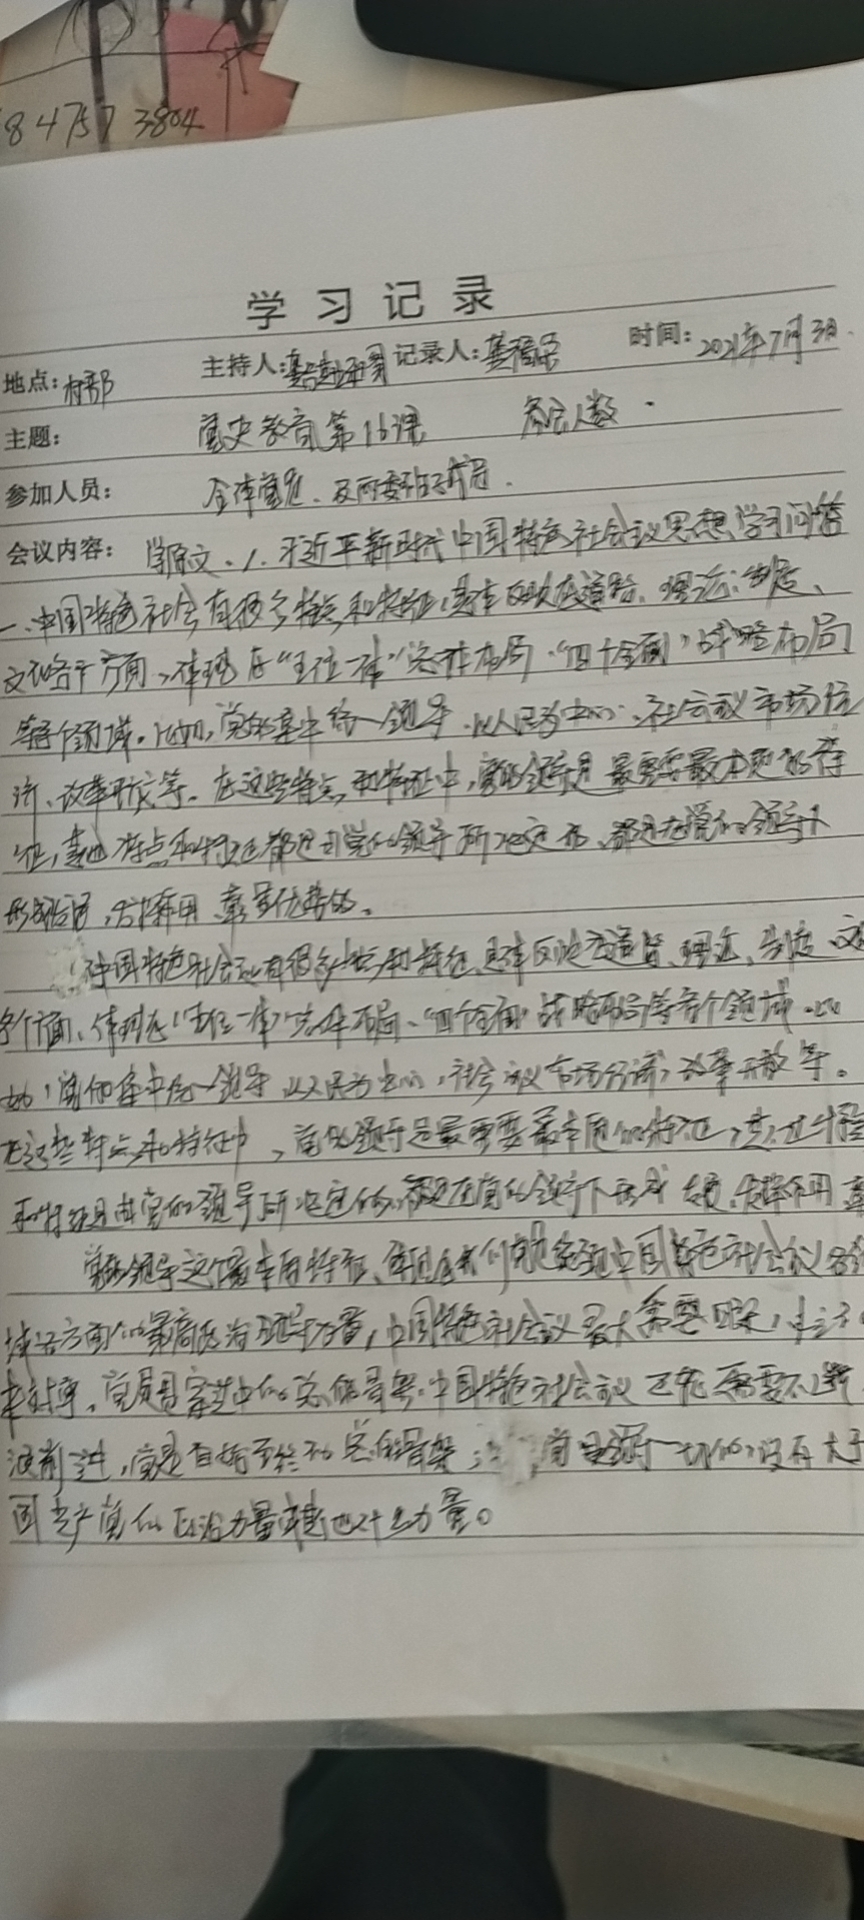 84757 3804
学习记录
地点：村部 主持人： 记录人：龚 时间：2021年7月3日.
主题： 党史教育第16课 参会人数
参加人员： 全体党员、及两委班子成员.
会议内容： 学原文.1.习近平新时代中国特色社会主义思想学习问答
一、中国特色社会有很多特点和特征,具体反映在道路、理论、制度、
文化各个方面,体现在“五位一体”总体布局、“四个全面”战略布局
等各个领域。比如,党的集中统一领导、以人民为中心、社会主义市场经
济、改革开放等。在这些特点和特征中,党的领导是最重要最本质的特
征,其他特点和特征都是由党的领导所决定的、都是在党的领导下
形成 ,发挥作用 优势的。
中国特色社会主义有很多特点和特征,具体反映在道路、理论、制度、文
各个方面、体现在“五位一体”总体布局、“四个全面”战略布局等各个领域。比
如,党的集中统一领导 以人民为中心,社会主义市场经济,改革开放等。
在这些特点和特征中,党的领导是最重要最本质的特征,其他
和特征是由党的领导所决定的、都是在党的领导下形成 发挥作用
党的领导这个最本质特征、体现在 中国特色社会主义各领
域各方面的最高政治领导力量,中国特色社会主义
党是 中的 中国特色社会主义
前进,党是自始至终的 党是领导一切的,没有大于
国共产党的政治力量或其他什么力量。